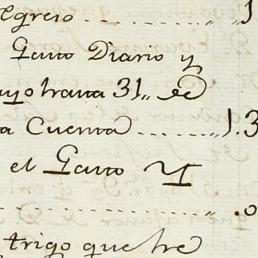 greso .. 1
Gasto Diario y
hasta 31,, de
a Cuenta ...... 1.3
el Gasto y
.0
trigo que he